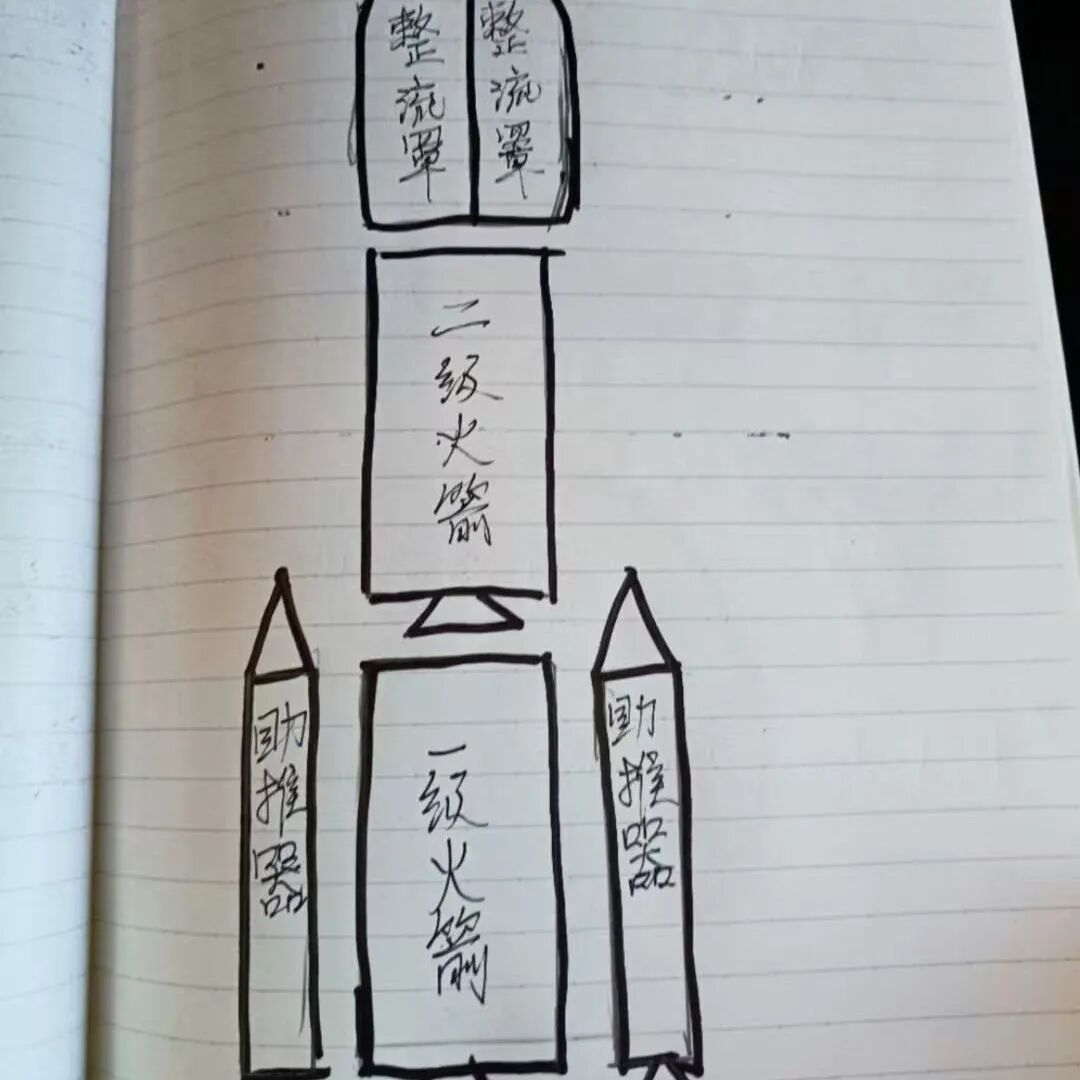 整流罩
整流罩
二级火箭
助推器
一级火箭
助推器